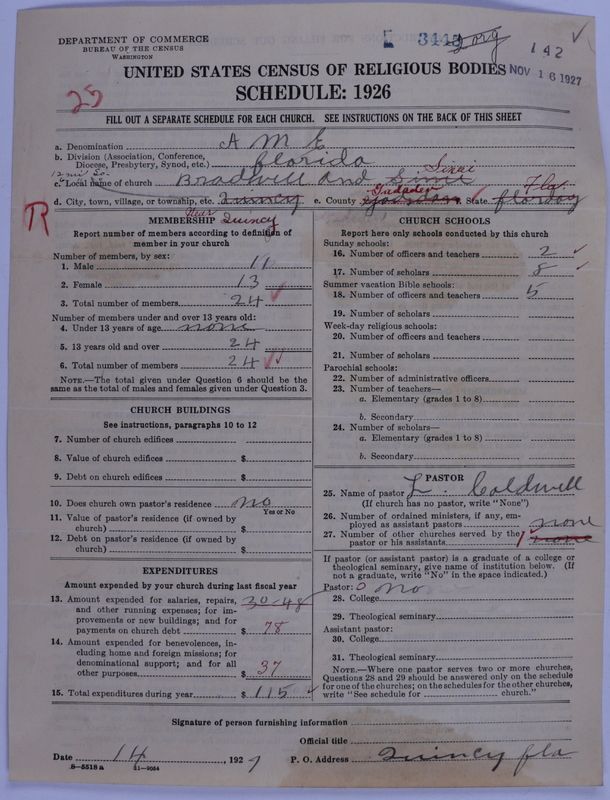 DEPARTMENT OF COMMERCE
BUREAU OF THE CENSUS
WASHINGTON
142
NOV 16 1927
UNITED STATES CENSUS OF RELIGIOUS BODIES
SCHEDULE: 1926
25
FILL OUT A SEPARATE SCHEDULE FOR EACH CHURCH. SEE INSTRUCTIONS ON THE BACK OF THIS SHEET
a. Denomination A M E
b. Division (Association, Conference, Diocese, Presbytery, Synod, etc.) Florida
Sinai
12 mi So.
c. Local name of church Bradwell and
Gadsden Fla.
d. City, town, village, or township, etc. Quincy e. County State
R
Near Quincy
MEMBERSHIP
Report number of members according to definition of
member in your church
Number of members, by sex:
1. Male 11
2. Female 13
3. Total number of members 24
Number of members under and over 13 years old:
4. Under 13 years of age none
5. 13 years old and over 24
6. Total number of members 24
NOTE.—The total given under Question 6 should be the
same as the total of males and females given under Question 3.
CHURCH BUILDINGS
See instructions, paragraphs 10 to 12
7. Number of church edifices
8. Value of church edifices $
9. Debt on church edifices $
10. Does church own pastor's residence no
Yes or No
11. Value of pastor's residence (if owned by
church) $
12. Debt on pastor's residence (if owned by
church) $
EXPENDITURES
Amount expended by your church during last fiscal year
13. Amount expended for salaries, repairs, 30-48
and other running expenses; for im-
provements or new buildings; and for
payments on church debt $ 78
14. Amount expended for benevolences, in-
cluding home and foreign missions; for
denominational support; and for all
other purposes $ 37
15. Total expenditures during year $ 115
CHURCH SCHOOLS
Report here only schools conducted by this church
Sunday schools:
16. Number of officers and teachers 2
17. Number of scholars 8
Summer vacation Bible schools:
18. Number of officers and teachers 5
19. Number of scholars
Week-day religious schools:
20. Number of officers and teachers
21. Number of scholars
Parochial schools:
22. Number of administrative officers
23. Number of teachers—
a. Elementary (grades 1 to 8)
b. Secondary
24. Number of scholars—
a. Elementary (grades 1 to 8)
b. Secondary
PASTOR
25. Name of pastor L. Coldwell
(If church has no pastor, write "None")
26. Number of ordained ministers, if any, em-
ployed as assistant pastors none
27. Number of other churches served by the
pastor or his assistants 1 none
If pastor (or assistant pastor) is a graduate of a college or
theological seminary, give name of institution below. (If
not a graduate, write "No" in the space indicated.)
Pastor: 0 no
28. College
29. Theological seminary
Assistant pastor:
30. College
31. Theological seminary
NOTE.—Where one pastor serves two or more churches,
Questions 28 and 29 should be answered only on the schedule
for one of the churches; on the schedules for the other churches,
write "See schedule for church."
Signature of person furnishing information
Official title
Date 14, 1927 P. O. Address Quincy fla
8—5518a 11—9054